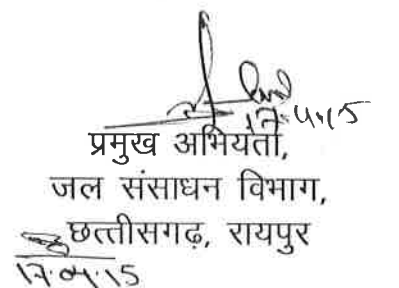 17.4.15
प्रमुख अभियंता,
जल संसाधन विभाग,
छत्तीसगढ़, रायपुर
17.04.15